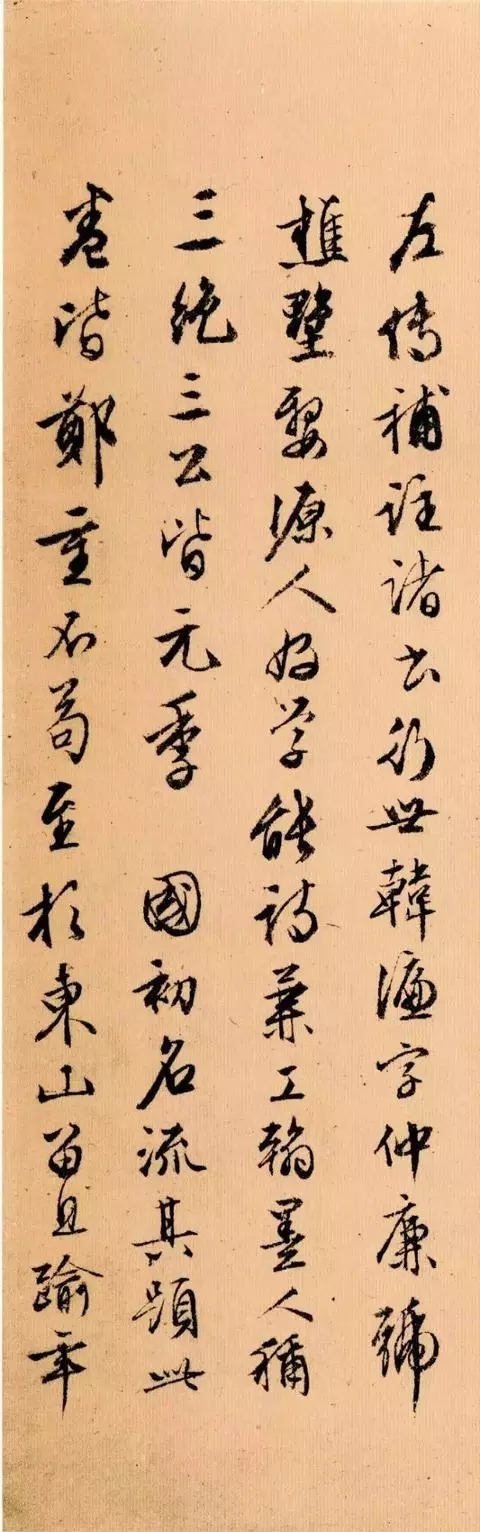 左傳補註諸書行世韓濂字仲廉號
樵墅婺源人好学能詩兼工翰墨人稱
三絶三公皆元季 國初名流其題此
卷皆鄭重不苟至於東山留且踰年